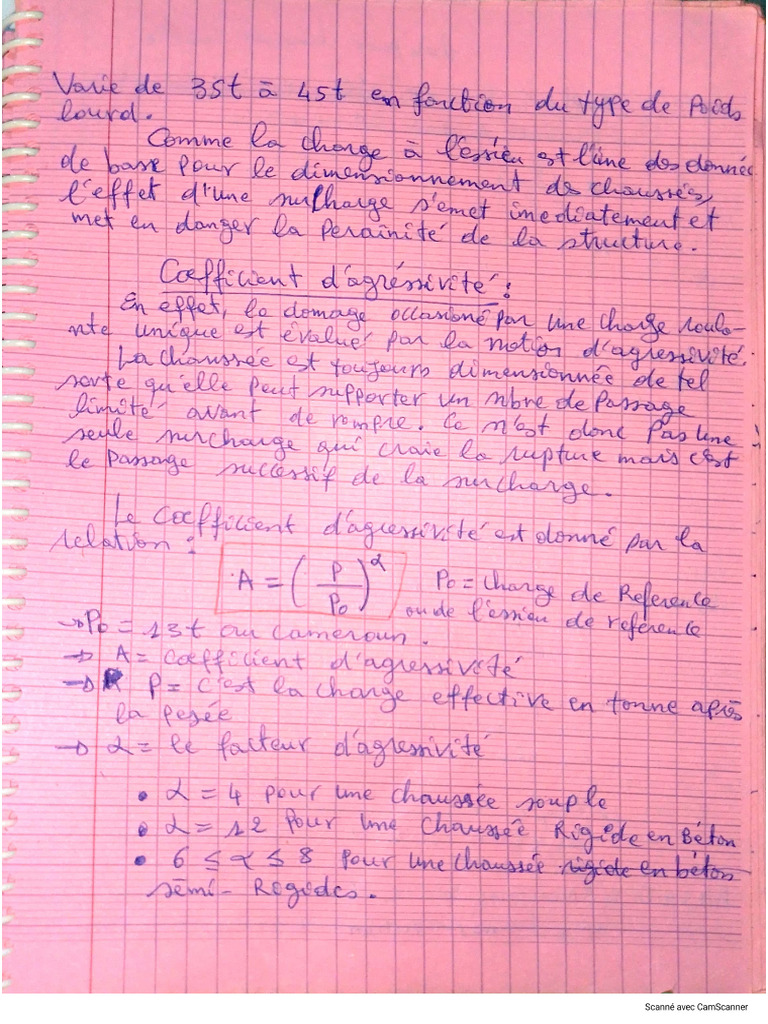 Varie de 35t à 45t en fonction du type de Poids
lourd.
Comme la charge à l'essieu est l'une des donnée
de base pour le dimensionnement des chaussées,
l'effet d'une surcharge s'emet imediatement et
met en danger la perainité de la structure.
Coefficient d'agréssivité :
En effet, le domage occasioné par une charge roula-
nte unique est évalué par la notion d'agressivité.
La chaussée est toujours dimensionnée de tel
sorte qu'elle peut supporter un nbre de Passage
limité avant de rompre. Ce n'est donc Pas une
seule surcharge qui craie la rupture mais c'est
le Passage successif de la surcharge.
Le Coefficient d'agressivité est donné par la
relation :
A = (P/P₀)^α P₀ = Charge de Reference
ou de l'essieu de reference
→ P₀ = 13t au Cameroun.
→ A = Coefficient d'agressivité
→ P = C'est la charge effective en tonne après
la pesée
→ α = le facteur d'agressivité
• α = 4 pour une chaussée souple
• α = 12 Pour une Chaussée Rigide en Béton
• 6 ≤ α ≤ 8 Pour une chaussée rigide en béton
sémi-Regides.
Scanné avec CamScanner